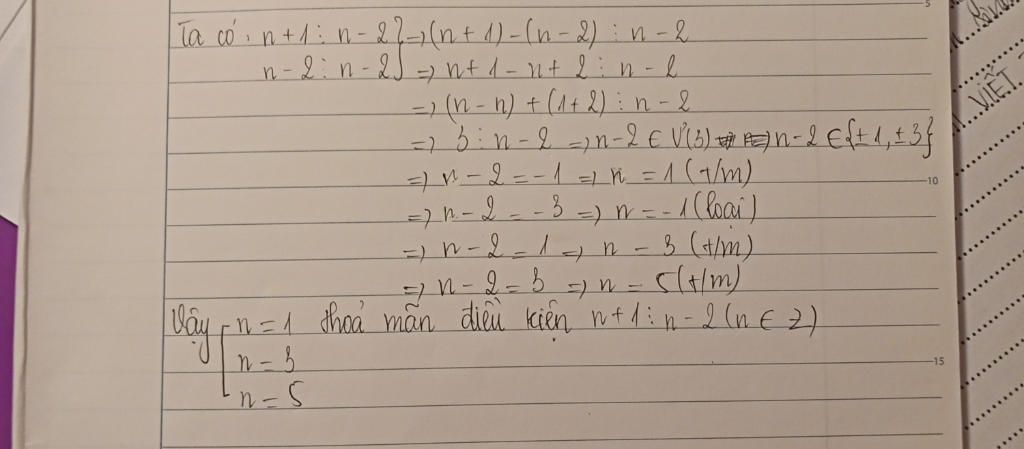 Ta có: n+1 ⋮ n-2 } => (n+1)-(n-2) ⋮ n-2
n-2 ⋮ n-2 } => n+1-n+2 ⋮ n-2
=> (n-n)+(1+2) ⋮ n-2
=> 3 ⋮ n-2 => n-2 ∈ Ư(3) => n-2 ∈ {±1, ±3}
=> n-2 = -1 => n = 1 (t/m)
=> n-2 = -3 => n = -1 (loại)
=> n-2 = 1 => n = 3 (t/m)
=> n-2 = 3 => n = 5 (t/m)
Vậy [ n = 1 thoả mãn điều kiện n+1 ⋮ n-2 (n ∈ Z)
n = 3
n = 5
5
10
15
VIẾT